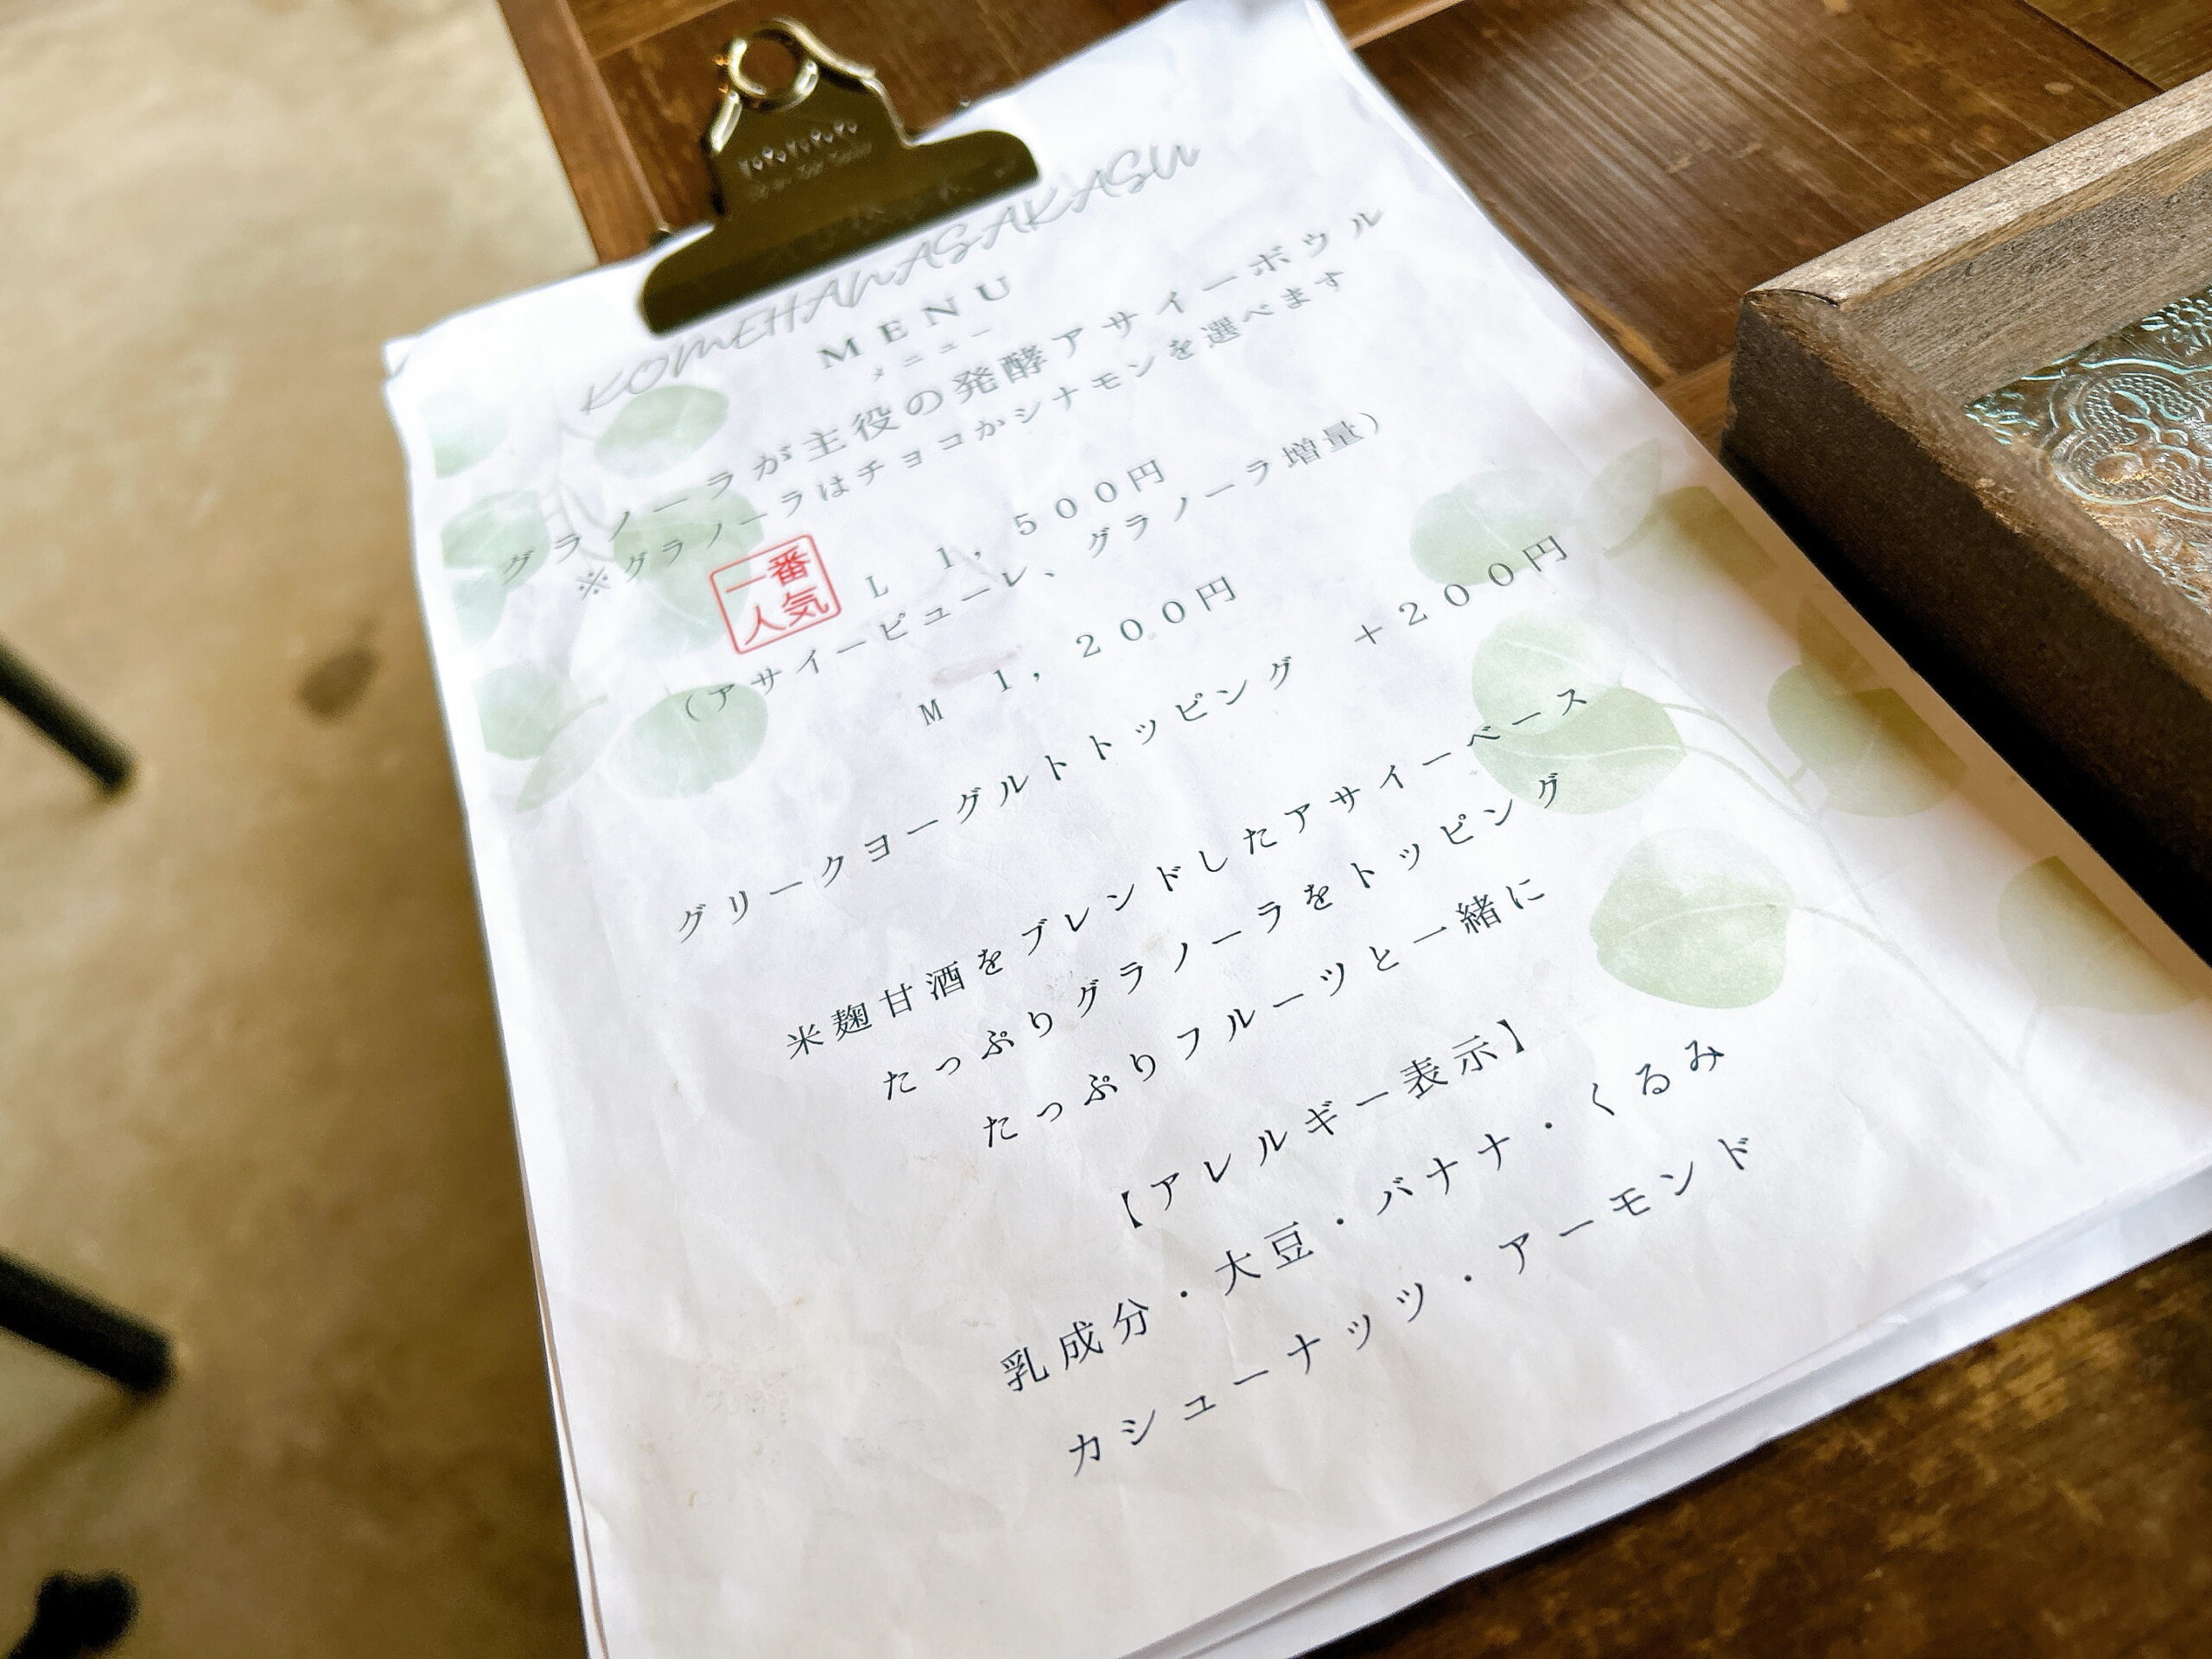 KOMEHANASAKASU
MENU
メニュー
グラノーラが主役の発酵アサイーボウル
※グラノーラはチョコかシナモンを選べます
一番
人気
L 1,500円
(アサイーピューレ、グラノーラ増量)
M 1,200円
グリークヨーグルトトッピング +200円
米麹甘酒をブレンドしたアサイーベース
たっぷりグラノーラをトッピング
たっぷりフルーツと一緒に
【アレルギー表示】
乳成分・大豆・バナナ・くるみ
カシューナッツ・アーモンド